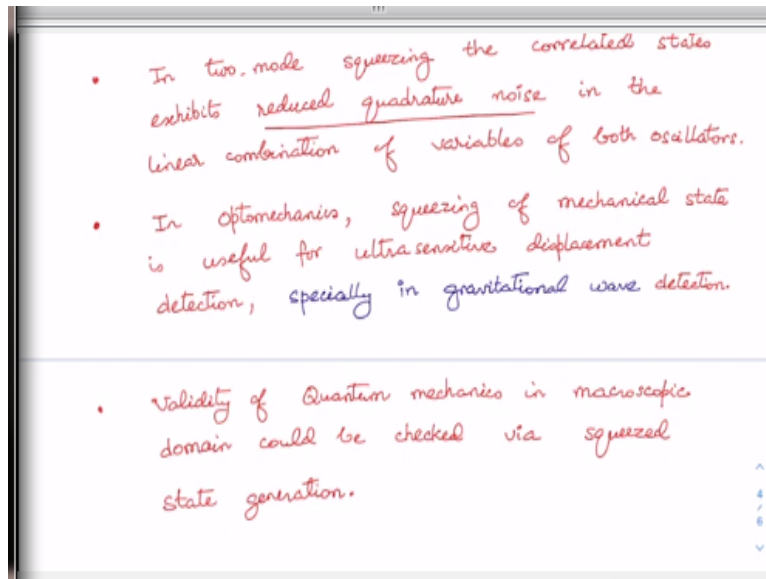 • In two-mode squeezing the correlated states
exhibits reduced quadrature noise in the
linear combination of variables of both oscillators.
• In optomechanics, squeezing of mechanical state
is useful for ultrasensitive displacement
detection, specially in gravitational wave detection.
• Validity of Quantum mechanics in macroscopic
domain could be checked via squeezed
state generation.
4
/
6